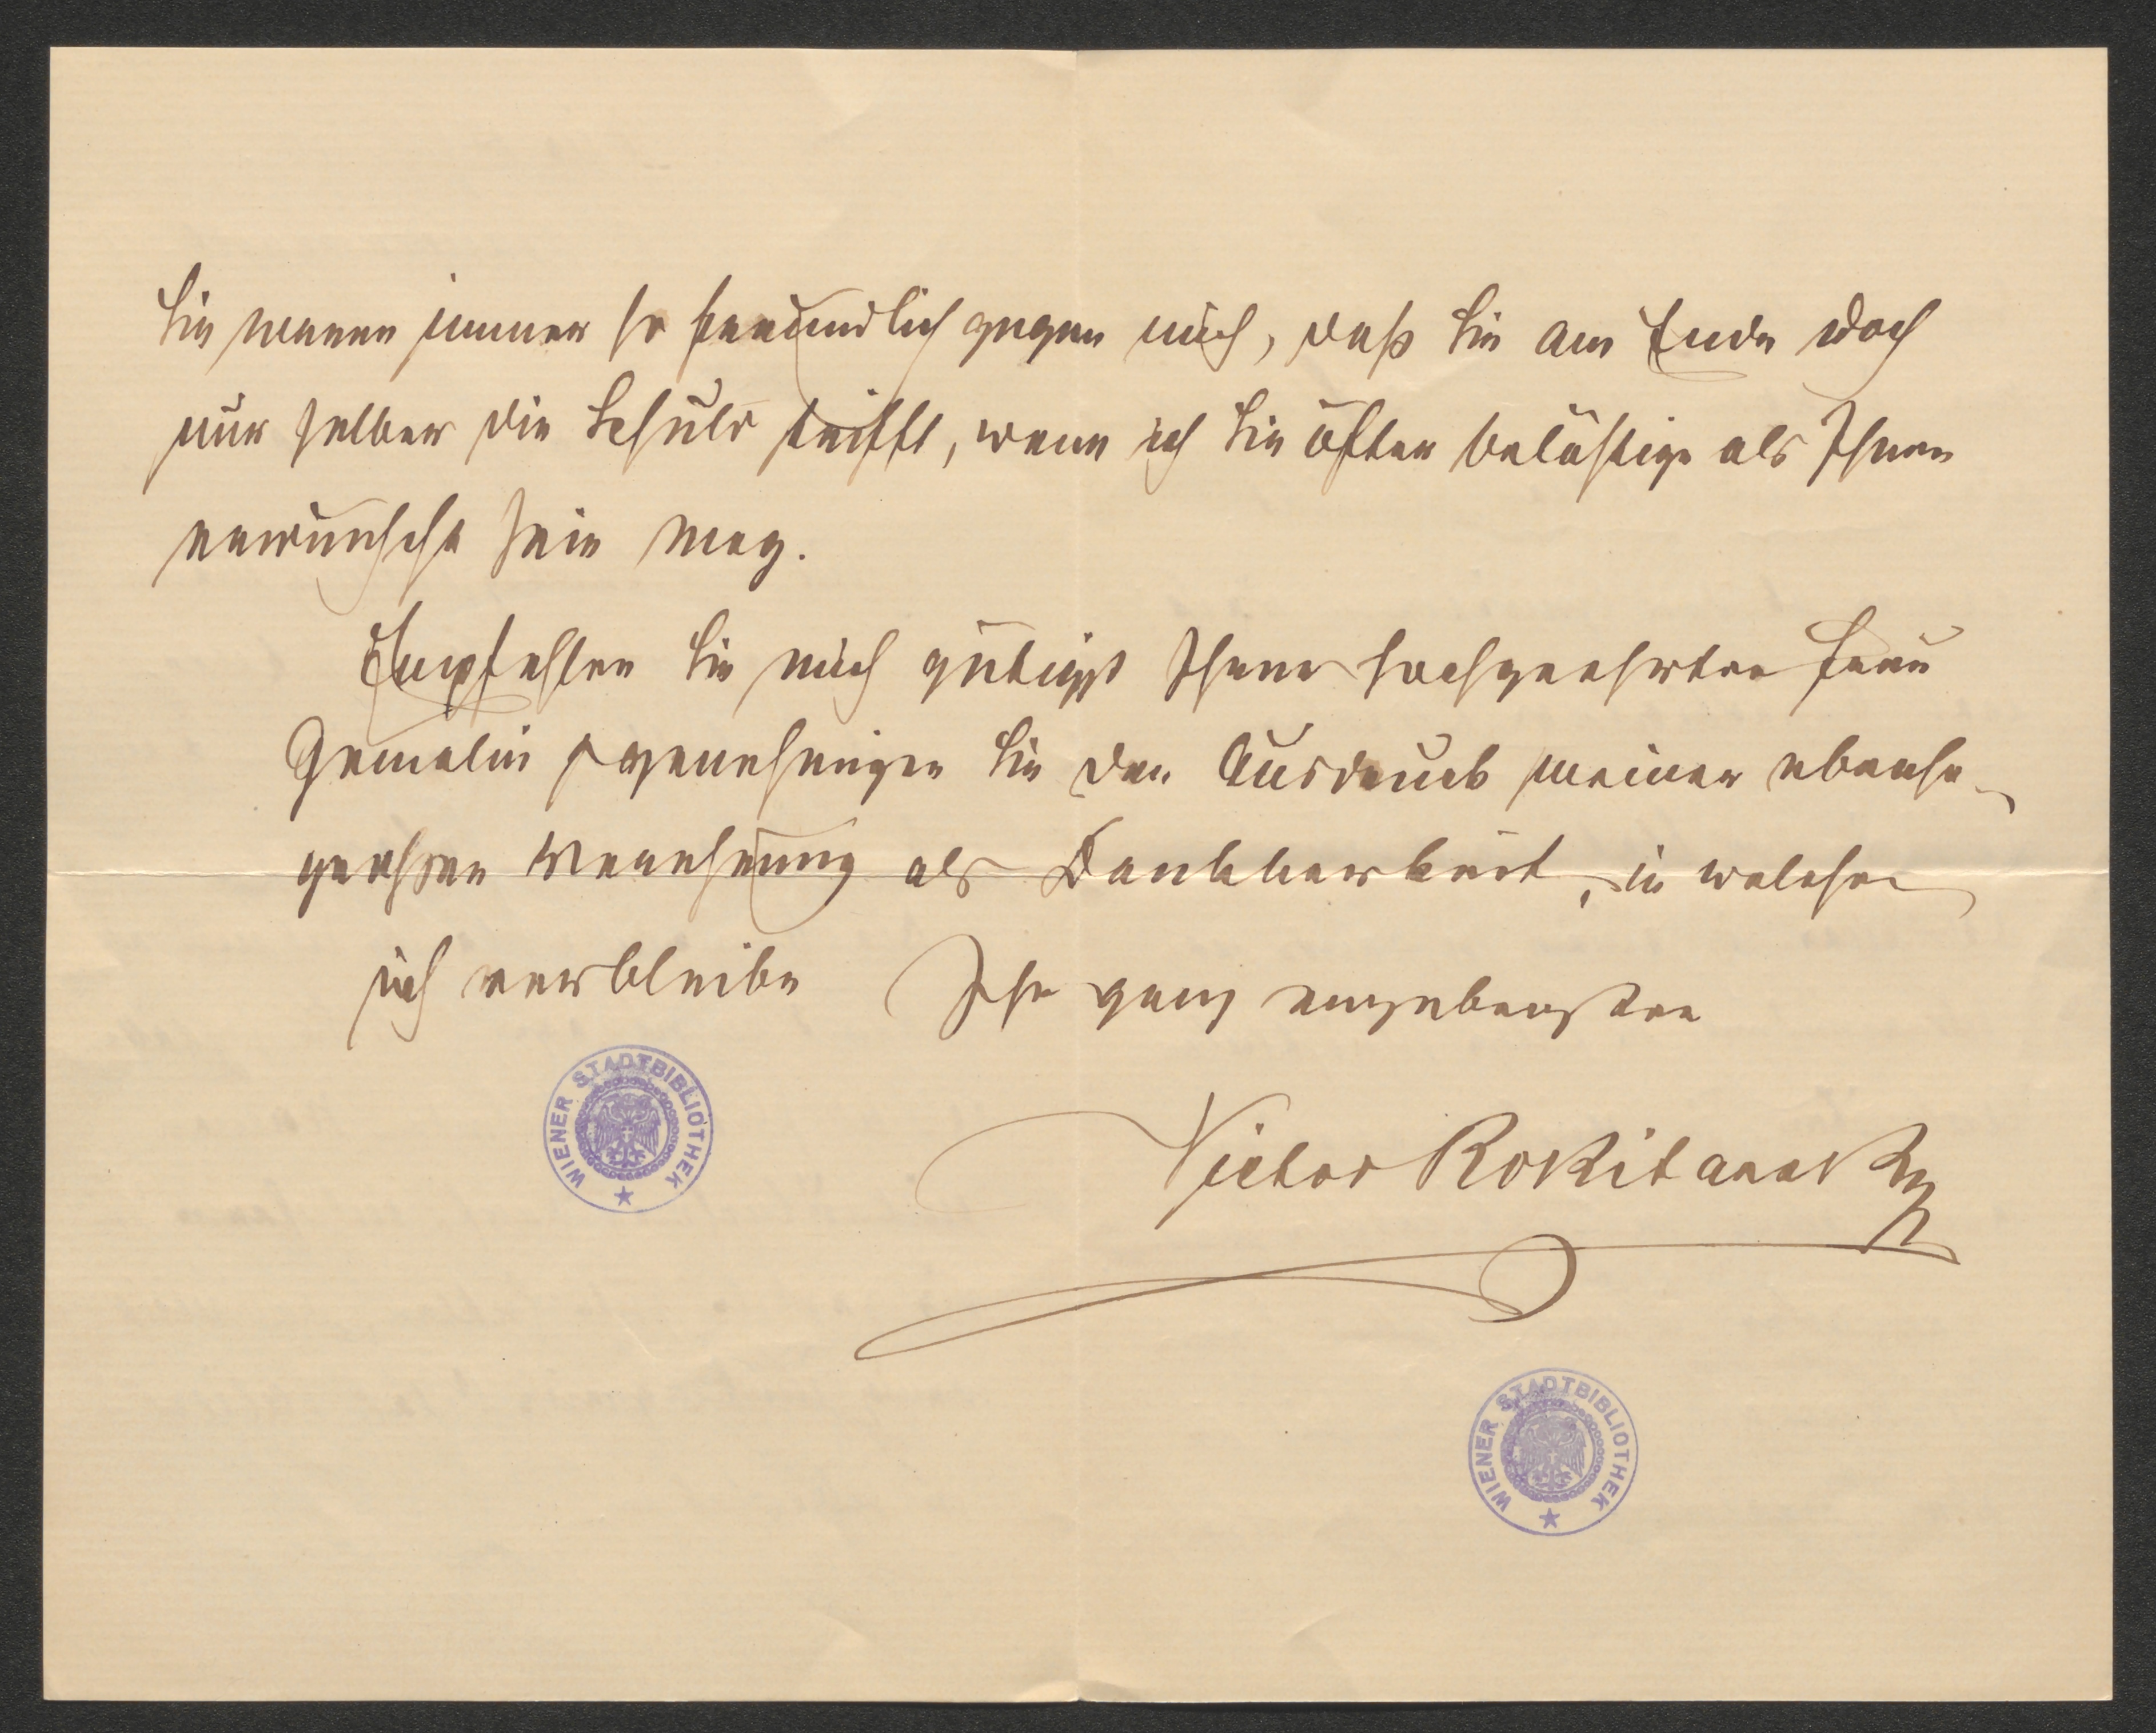 Sie waren immer so freundlich gegen mich, daß Sie am Ende doch
nur selber die Schuld trifft, wenn ich Sie öfter belästige als Ihnen
erwünscht sein mag.
Empfehlen Sie mich gütigst Ihrer hochgeehrten Frau
Gemalin genehmigen Sie den Ausdruck meiner ebenso
großen Verehrung als Dankbarkeit, in welcher
ich verbleibe Ihr ganz ergebenster
Victor Rokitansky
WIENER STADTBIBLIOTHEK
WIENER STADTBIBLIOTHEK